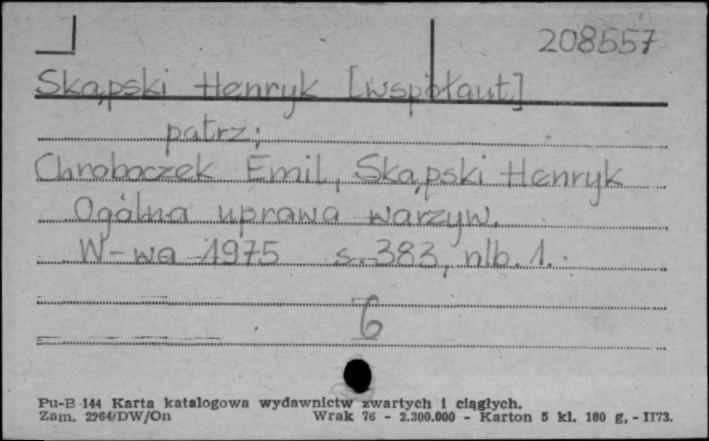 208557
Skąpski Henryk [współaut]
patrz:
Chroboczek Emil, Skąpski Henryk
Ogólna uprawa warzyw.
W-wa 1975 s. 383, nlb. 1.
6
Pu-B-144 Karta katalogowa wydawnictw zwartych i ciągłych.
Zam. 2264/DW/On Wrak 76 - 2.300.000 - Karton 5 kl. 180 g, - II73.